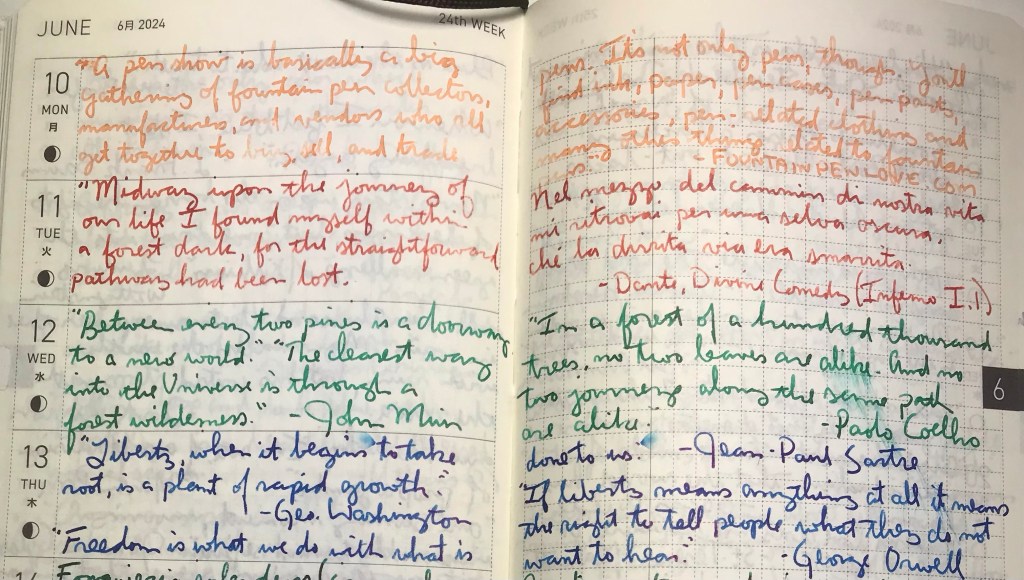 JUNE 6月 2024
24th WEEK
10
MON
月
"A pen show is basically a big
gathering of fountain pen collectors,
manufacturers, and vendors who all
get together to buy, sell, and trade
pens. It's not only pens, though. You'll
find ink, paper, pen cases, pen parts,
accessories, pen-related clothing and
many other things related to fountain
pens."
- FOUNTAINPENLOVE.COM
11
TUE
火
"Midway upon the journey of
our life I found myself within
a forest dark, for the straightforward
pathway had been lost.
Nel mezzo del cammin di nostra vita
mi ritrovai per una selva oscura,
ché la diritta via era smarrita.
- Dante, Divine Comedy (Inferno I.1)
12
WED
水
"Between every two pines is a doorway
to a new world." "The clearest way
into the Universe is through a
forest wilderness." - John Muir
"In a forest of a hundred thousand
trees, no two leaves are alike. And no
two journeys along the same path
are alike."
- Paolo Coelho
6
13
THU
木
"Liberty, when it begins to take
root, is a plant of rapid growth."
- Geo. Washington
"Freedom is what we do with what is
done to us." - Jean-Paul Sartre
"If liberty means anything at all it means
the right to tell people what they do not
want to hear."
- George Orwell
14